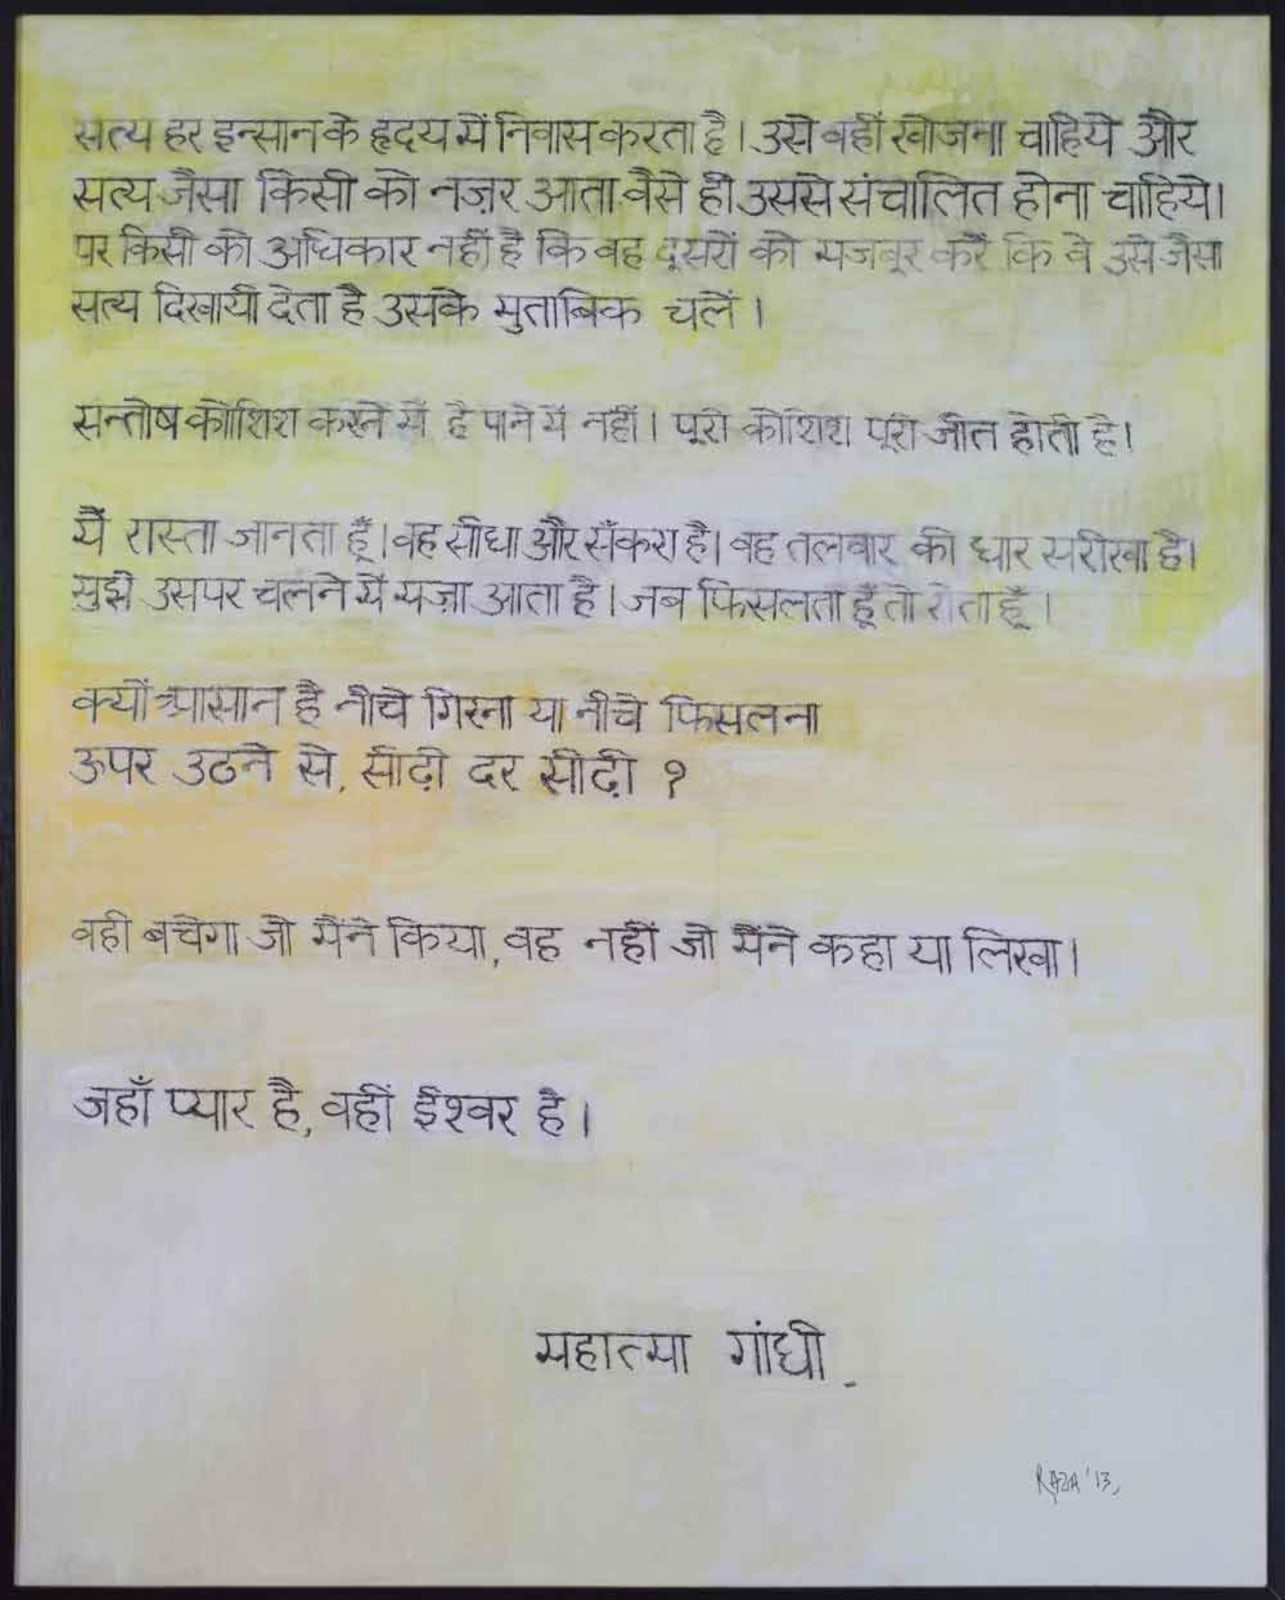 सत्य हर इन्सान के हृदय में निवास करता है। उसे वहीं खोजना चाहिये और
सत्य जैसा किसी को नज़र आता वैसे ही उससे संचालित होना चाहिये।
पर किसी को अधिकार नहीं है कि वह दूसरों को मजबूर करे कि वे उसे जैसा
सत्य दिखायी देता है उसके मुताबिक चलें।
सन्तोष कोशिश करने में है पाने में नहीं। पूरी कोशिश पूरी जीत होती है।
मैं रास्ता जानता हूँ। वह सीधा और सँकरा है। वह तलवार की धार सरीखा है।
मुझे उसपर चलने में मज़ा आता है। जब फिसलता हूँ तो रोता हूँ।
क्यों आसान है नीचे गिरना या नीचे फिसलना
ऊपर उठने से, सीढ़ी दर सीढ़ी ?
वही बचेगा जो मैंने किया, वह नहीं जो मैंने कहा या लिखा।
जहाँ प्यार है, वहीं ईश्वर है।
महात्मा गांधी.
RAZA '13,